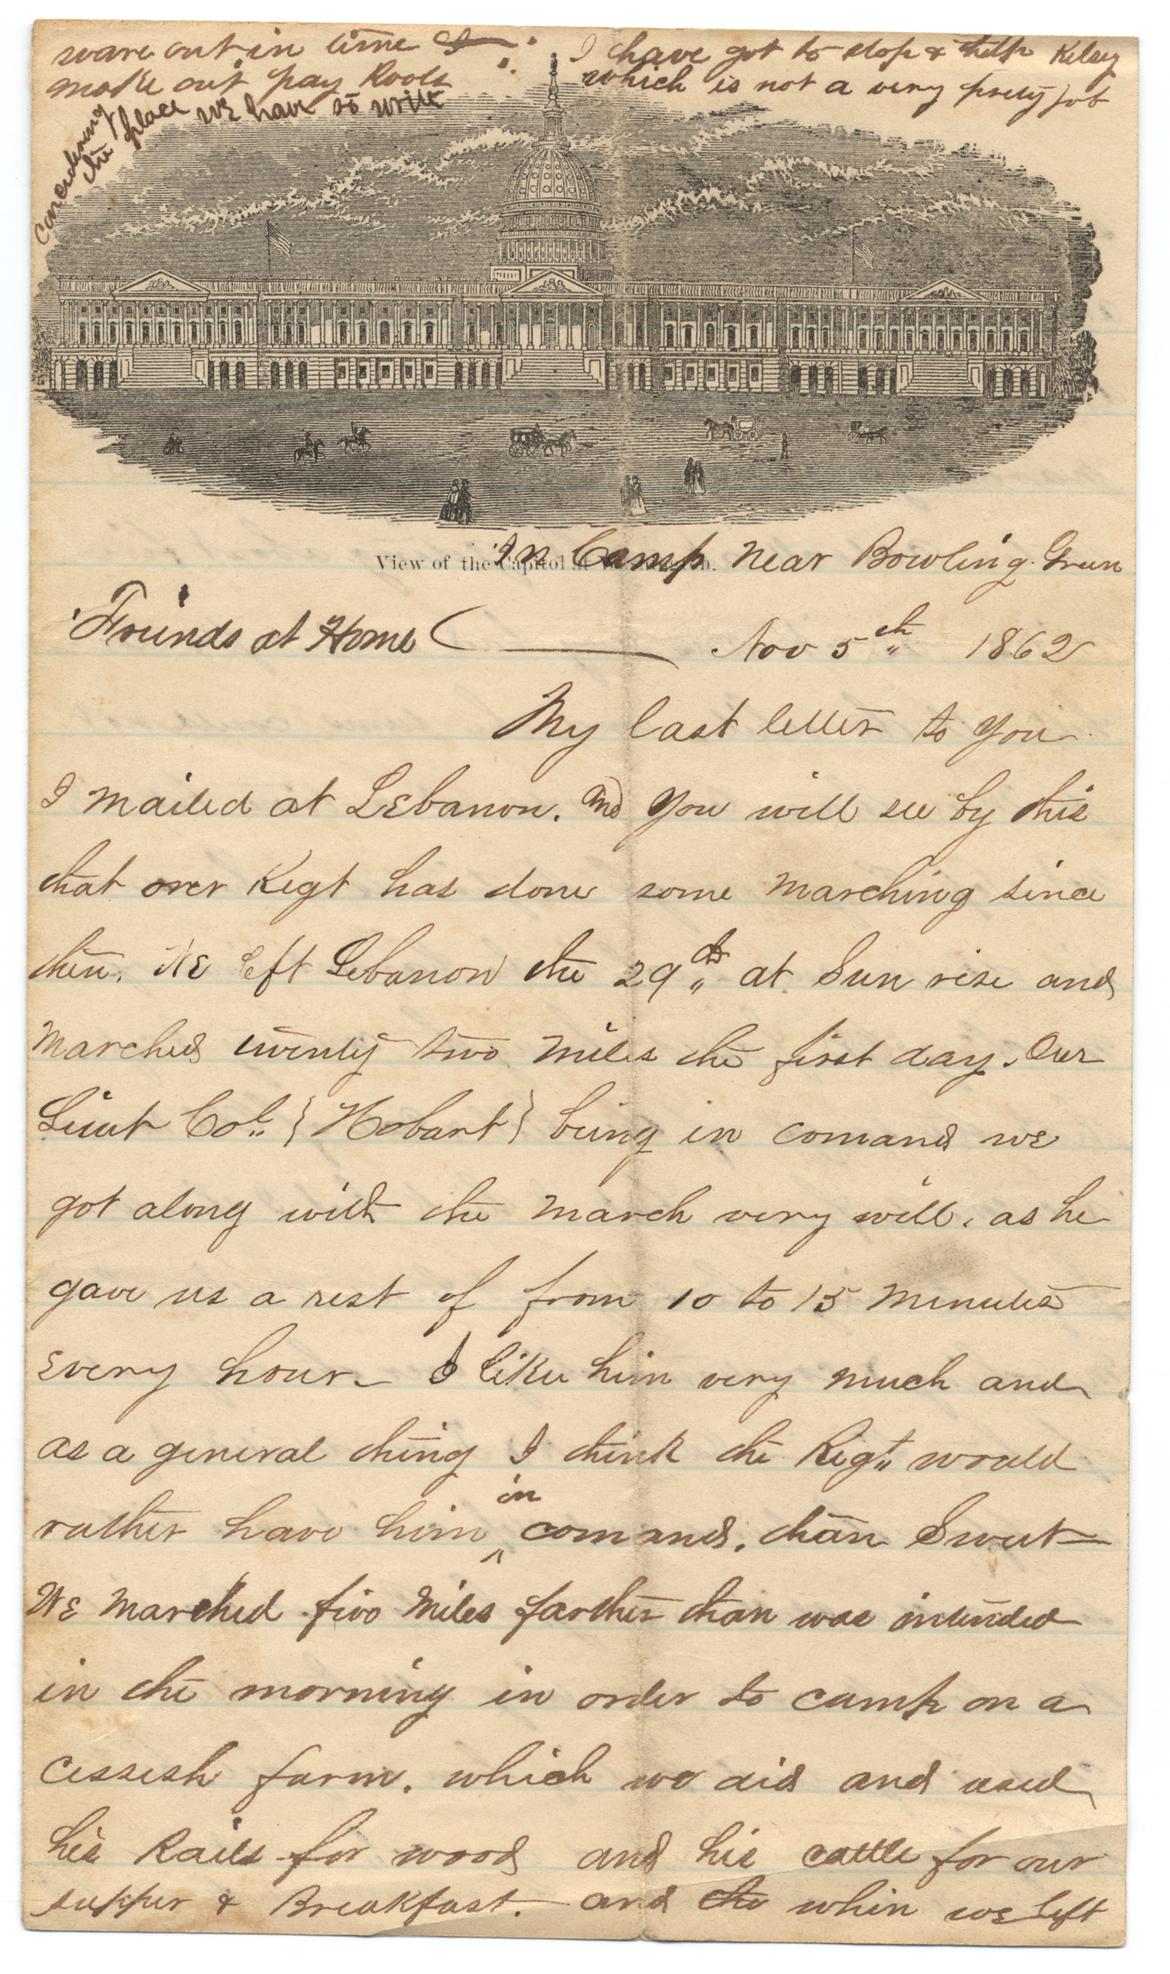 ware out in time I
make out pay Rools
Concidering
the place we have to write
I have got to stop & help Kelsey
which is not a very prety job
View of the Capitol at
In Camp Near Bowling Green
Friends at Home
Nov 5th 1862
My last letter to you
I mailed at Lebanon. And you will see by this
that over Regt has done some marching since
then. We left Lebanon the 29th at Sun rise and
Marched twenty two miles the first day. Our
Lieut Col. {Hobart} being in comand we
got along with the march very well. as he
gave us a rest of from 10 to 15 Minutes
Every hour— I like him very much and
as a general thing I think the Regt. would
rather have him in comand. than Sweet—
We Marched five Miles farther than was intended
in the morning in order to camp on a
Cessesh farm. which we did and used
his Rails for wood and his cattle for our
supper & Breakfast. and the when we left